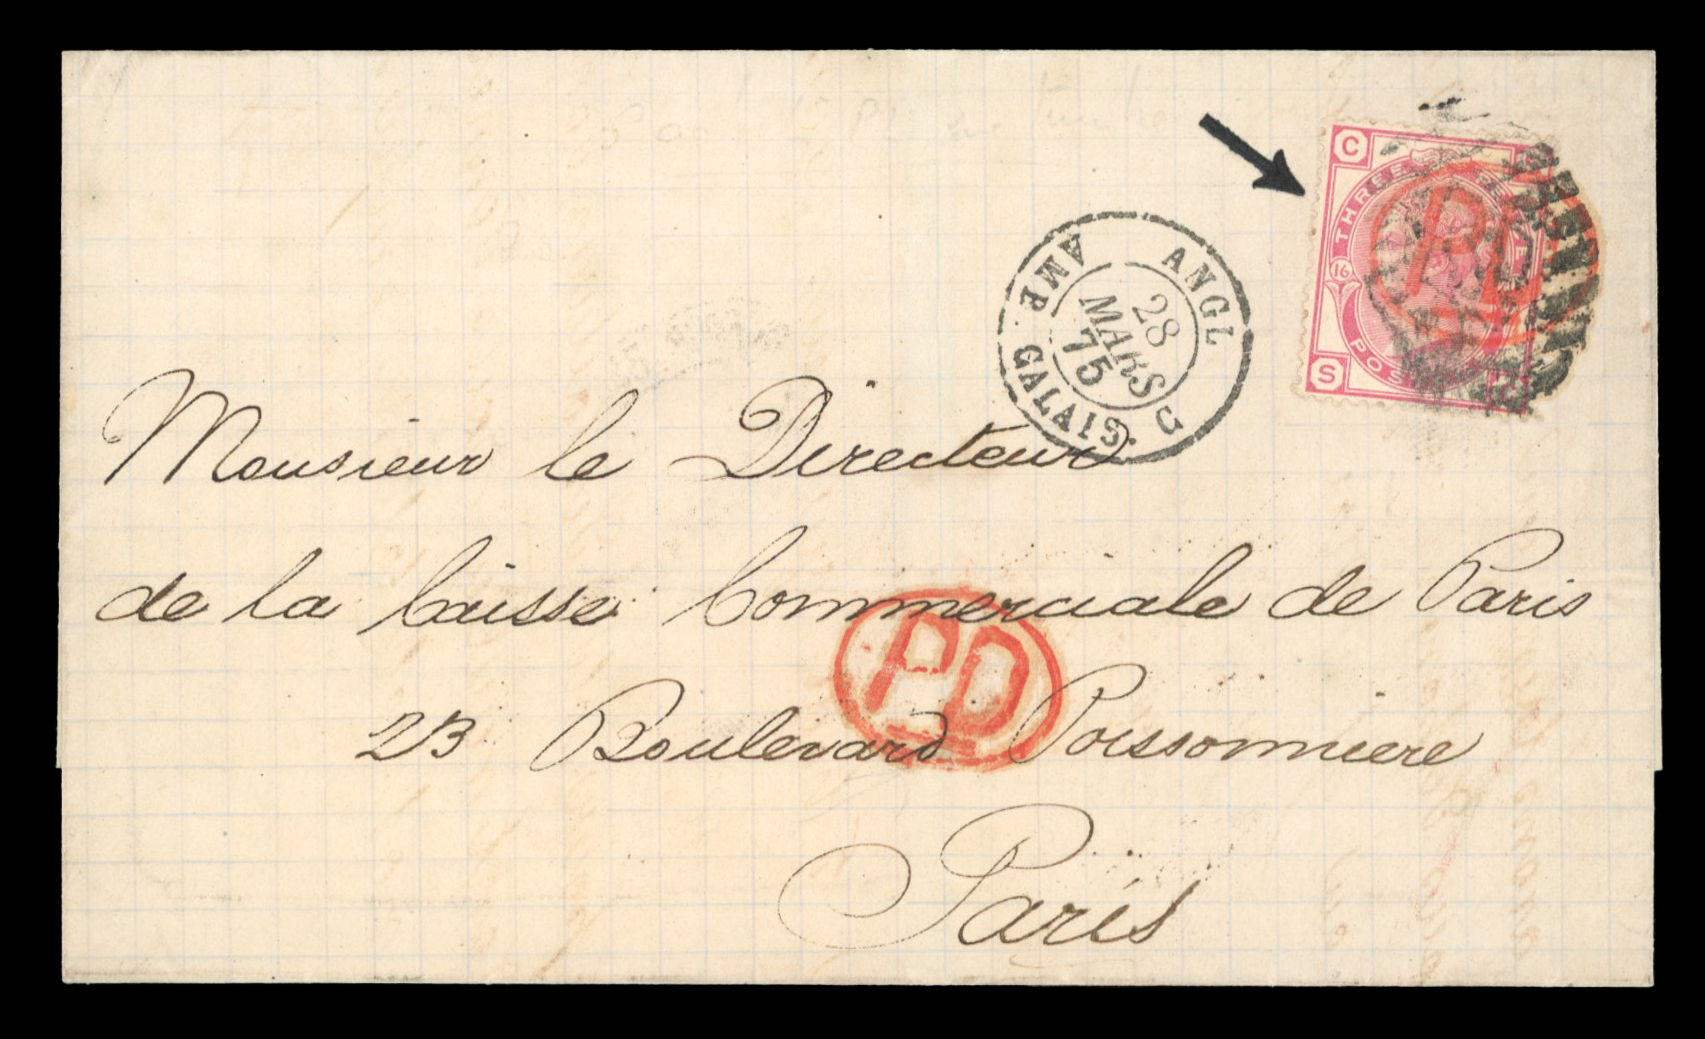 C
THREE
16
POS
S
PD
ANGL
AMB. CALAIS. G
28
MARS
75
Monsieur le Directeur
de la Caisse Commerciale de Paris
PD
23 Boulevard Poissonniere
Paris